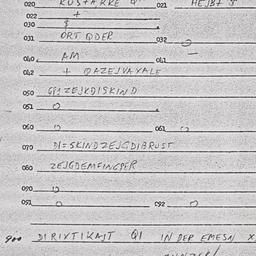 020 KUSTAKKE QI 021 HEJBT J
022 +
030 $
031 ORT QDER 032 O
040 AM 041 —
042 + QAZEJVAYALE
050 GPI ZEJKDISKIND
051 O
060 O 061 O
070 DI=SKINDZEJGDIBRUST
080 ZEJGDEMFINGPER
090 O
091 O 092 O
900 DIRIXTIKAJT QI IN DER EMESN X